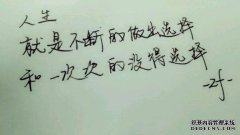 人生
就是不断的做出选择
和一次次的没得选择
-zf-